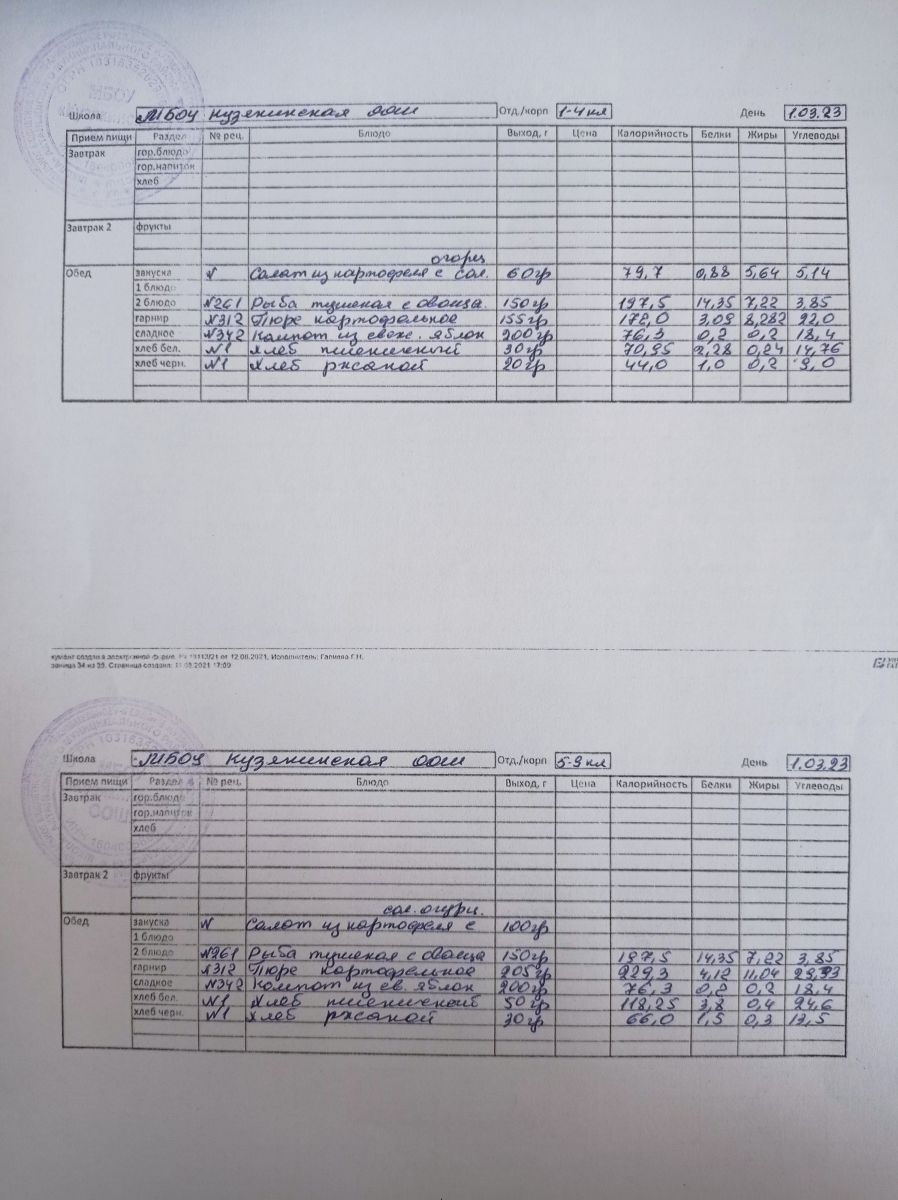 Школа МБОУ Кузякинская оош Отд./корп 1-4 кл День 1.03.23
Прием пищи Раздел № рец. Блюдо Выход, г Цена Калорийность Белки Жиры Углеводы
Завтрак гор.блюдо
гор.напиток
хлеб
Завтрак 2 фрукты
огорец
Обед закуска N Салат из картофеля с сол. 60гр 79,7 0,88 5,64 5,14
1 блюдо
2 блюдо N261 Рыба тушеная с овоща. 150гр 197,5 14,35 7,22 3,85
гарнир N312 Пюре картофельное 155гр 178,0 3,09 8,282 22,0
сладкое N342 Компот из свеж. яблок 200гр 76,3 0,2 0,2 18,4
хлеб бел. N1 Хлеб пшеничный 30гр 70,95 2,28 0,24 14,76
хлеб черн. N1 Хлеб ржаной 20гр 44,0 1,0 0,2 9,0
кумент создан в электронной форме. № 13113/21 от 12.08.2021. Исполнитель: Галиева Г.Н.
раница 34 из 35. Страница создана: 11.08.2021 17:09
МБОУ
ОГРН
Школа МБОУ Кузякинская оош Отд./корп 5-9 кл День 1.03.23
Прием пищи Раздел № рец. Блюдо Выход, г Цена Калорийность Белки Жиры Углеводы
Завтрак гор.блюдо
гор.напиток
хлеб
Завтрак 2 фрукты
сол. огурц.
Обед закуска N Салат из картофеля с 100гр
1 блюдо
2 блюдо N261 Рыба тушеная с овоща 150гр 197,5 14,35 7,22 3,85
гарнир N312 Пюре картофельное 205гр 229,3 4,12 11,04 29,33
сладкое N342 Компот из св. яблок 200гр 76,3 0,2 0,2 18,4
хлеб бел. N1 Хлеб пшеничный 50гр 118,25 3,8 0,4 24,6
хлеб черн. N1 Хлеб ржаной 30гр 66,0 1,5 0,3 13,5